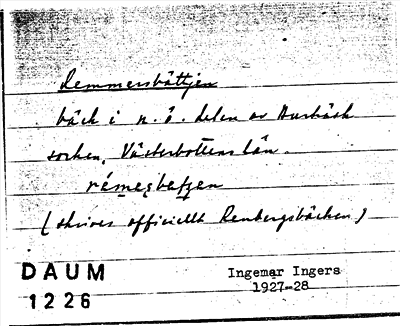 Remmersbättjen
bäck i n. ö. delen av Burträsk
socken, Västerbottens län.
(skrives officiellt Renbergsbäcken)
DAUM
1226
Ingemar Ingers
1927-28